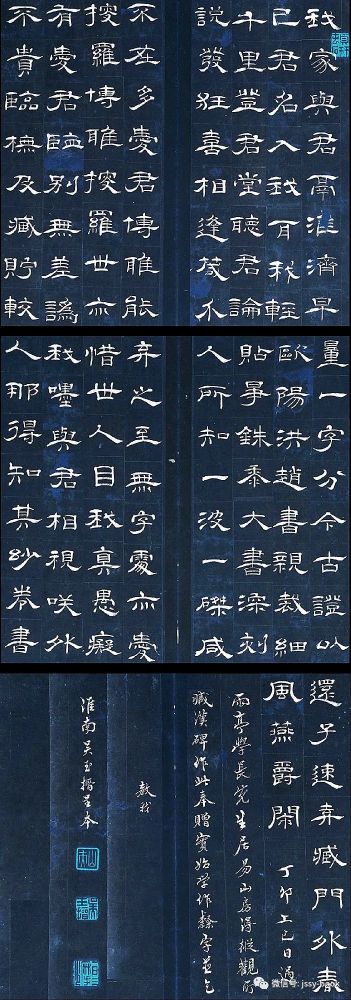 我家與君鬲淮濟早
已君名入我耳我輕
千里登君堂聽君論
說發狂喜相逢歲不
不在多愛君博雅能
搜羅博雅搜羅世亦
有愛君臨別無差譌
不貴臨橅及臧貯較
量一字分今古證以
歐陽洪趙書親裁細
貼畢銖黍大書深刻
人所知一波一磔咸
弃之至無字處亦愛
惜世人目我真愚癡
我嘿與君相視咲外
人那得知其妙券書
還子速弃臧門外春
風燕爵閙 丁卯上巳日過
雨亭學長先生居易山房得縱觀所
臧漢碑作此奉贈實始学作隸字並乞
教我
淮南吴玉搢呈本
微信号: jssy